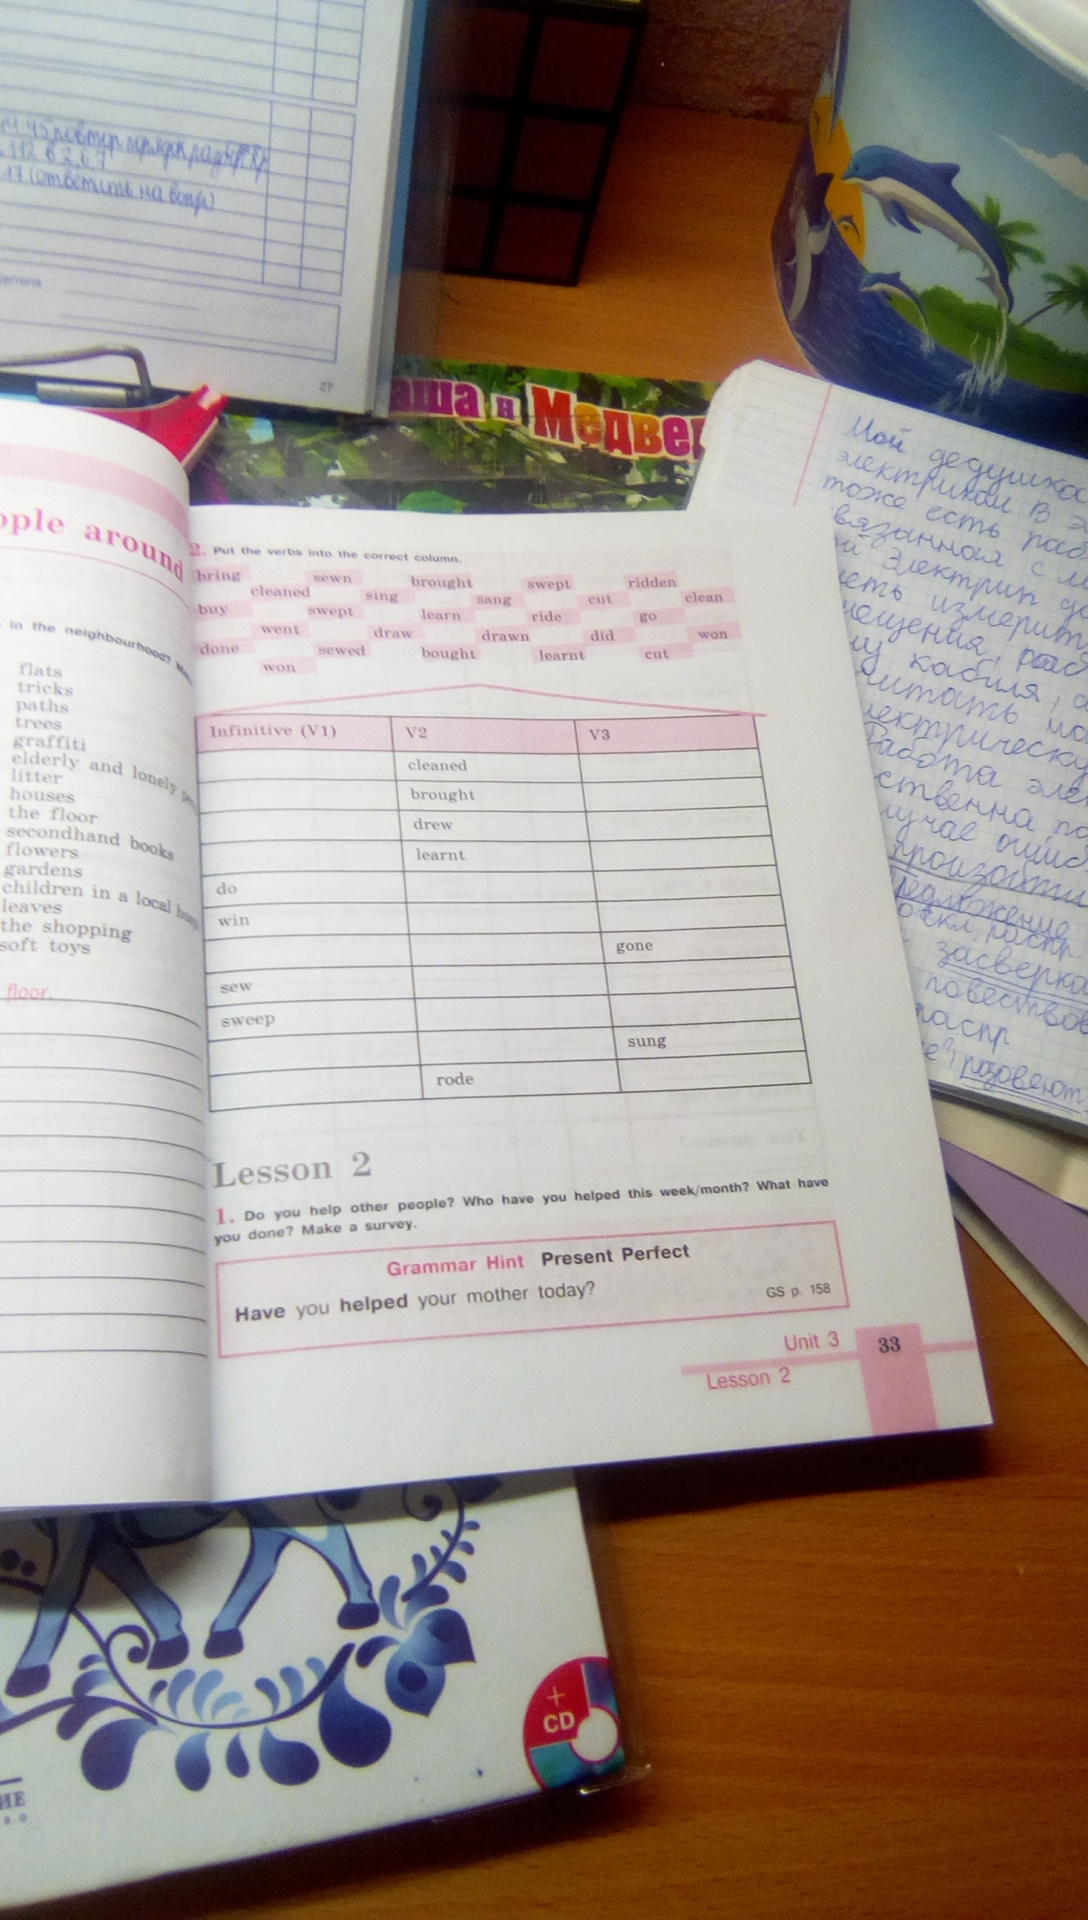 44-45 повтор порядок разбор
112 в 2, 6, 7
17 (ответить на вопр)
27
аша и Медвед
Мой дедушка
электриком В э
тоже есть раб
вязанная с
Электрик до
еть измерит
мещения, раб
му кабиля,
читать
лектрическу
Работа элек
ственна по
лучае ошиб
произойти
предложение
засверка
повествов
распр
розовеют
ople around
in the neighbourhood?
flats
tricks
paths
trees
graffiti
elderly and lonely
litter
houses
the floor
secondhand books
flowers
gardens
children in a local
leaves
the shopping
soft toys
floor.
2. Put the verbs into the correct column.
bring sewn brought swept ridden
cleaned sing sang cut clean
buy swept learn ride go
went draw drawn did won
done sewed bought learnt cut
won
Infinitive (V1) V2 V3
cleaned
brought
drew
learnt
do
win
gone
sew
sweep
sung
rode
Lesson 2
1. Do you help other people? Who have you helped this week/month? What have
you done? Make a survey.
Grammar Hint Present Perfect
Have you helped your mother today?
GS p. 158
Unit 3 33
Lesson 2
+
CD
ИЕ